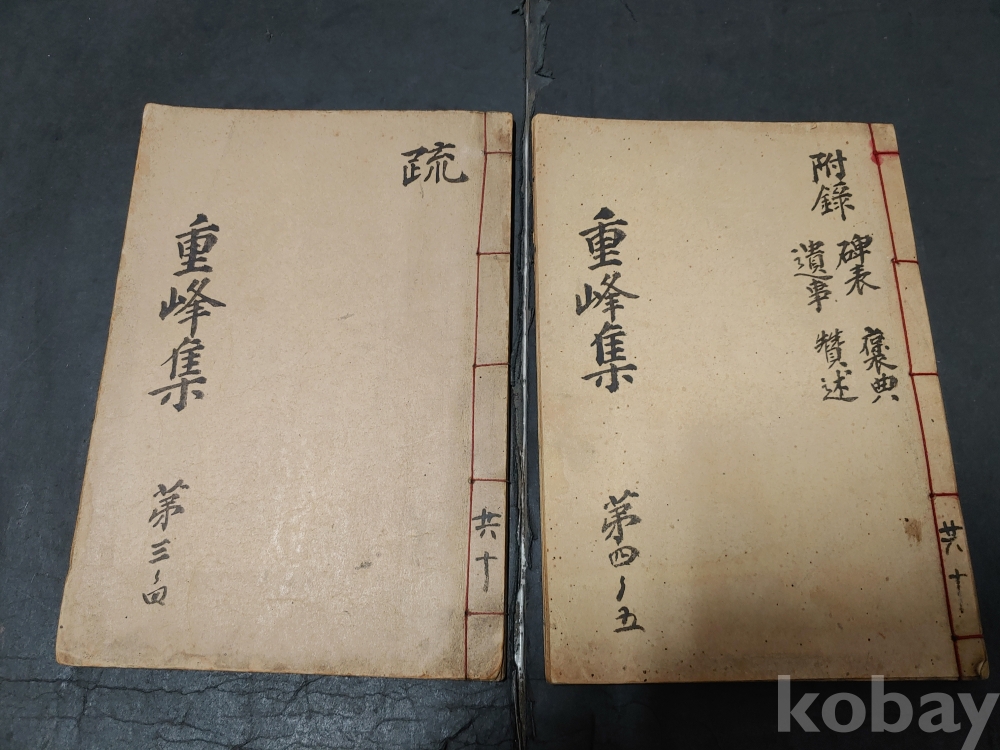 疏
重峰集
第三~四
共十
附錄
碑表
遺事
褒典
贊述
重峰集
第四~五
共十
kobay